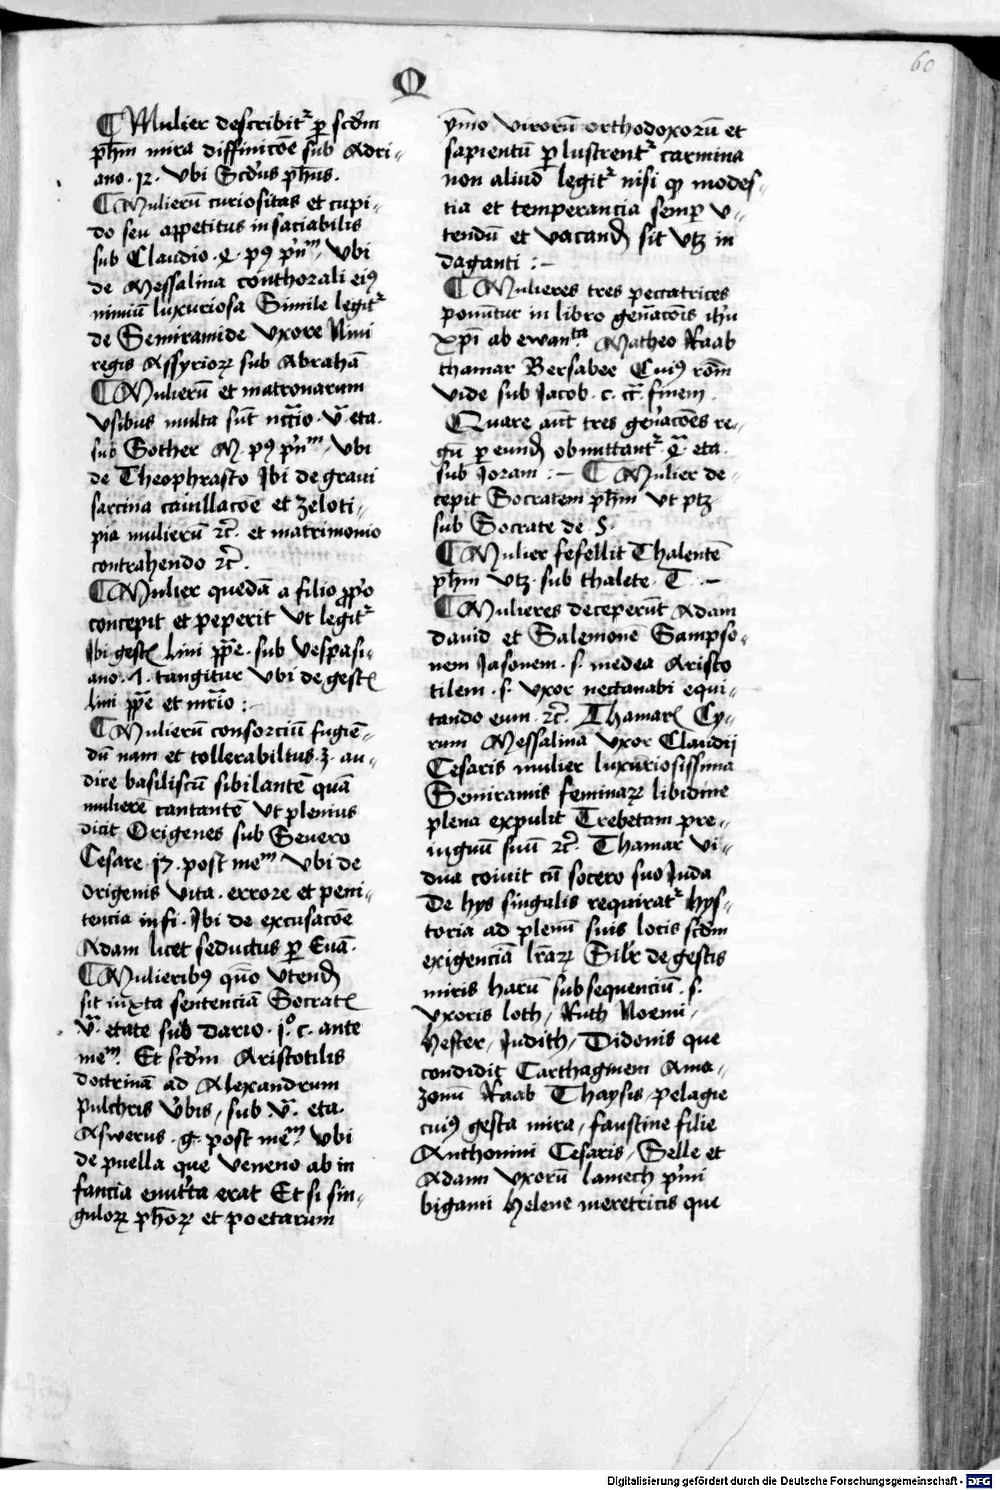 60
M
¶ Mulier describit᷑ ꝑ scd̄m
ph̄m mira diffinicōe sub Adri⸗
ano · 12 · vbi Scd̄us ph̄us ·
¶ Mulierū curiositas et cupi⸗
do seu appetitus insaciabilis
sub Claudio · pꝰ vbi
de Messalina conthorali eiꝰ
nimiū luxuriosa Simile legit᷑
de Semiramide vxore Nini
regis Assyrioꝝ sub Abrahā
¶ Mulierū et matronarum
vsibus multa sūt eta ·
sub Sother pꝰ vbi
de Theophrasto Ibi de graui
sarcina cauillacōe et zeloti⸗
pia mulierū ⁊c̄ · et matrimonio
contrahendo ⁊c̄ ·
¶ Mulier quedā a filio ꝓp̄o
concepit et peperit vt legit᷑
Ibi gestꝭ Lini pp̄e · sub vespasi⸗
ano · 1 · tangitur vbi de gestꝭ
lini pp̄e et :~
¶ Mulierū consorciū fugiē⸗
dū nam et tollerabilius · ꝫ · au⸗
dire basiliscū sibilantē quā
mulierē cantantē vt plenius
dicit Origenes sub Seuero
Cesare · 17 · post meᵐ vbi de
origenis vita · errore et peni⸗
tencia in fi · Ibi de excusacōe
Adam licet seductus ꝑ Euā ·
¶ Mulieribꝰ quō vtendꝭ
sit iuxta sentenciā Socratꝭ
v̄ · etate sub dario · c · ante
meᵐ · Et scd̄m Aristotilis
doctrinā ad Alexandrum
pulchris v̓bis / sub · v̄ · eta ·
Aswerus · g · post meᵐ vbi
de puella que veneno ab in
fancia enutrita erat Et si sin⸗
guloꝝ ph̄oꝝ et poetarum
ymo virorū orthodoxorū et
sapientū ꝑlustrent᷑ carmina
non aliud legit᷑ nisi ꝙ modes⸗
tia et temperancia semꝑ v⸗
tendū et vacandꝭ sit vtꝫ in
daganti :~
¶ Mulieres tres peccatrices
ponūtur in libro gen̄acōis ih̄u
xp̄i ab ewanᵗᵃ Matheo Raab
thamar Bersabee Cuiꝰ rōm
vide sub Jacob · c · cc̄ · finem ·
Quare aūt tres gen̓acōes re⸗
gū ꝑ eundꝭ obmittant᷑ · eta ·
sub Joram :~ ¶ Mulier de⸗
cepit Socratem ph̄m vt ptꝫ
sub Socrate de · S ·
¶ Mulier fefellit Thalentē
ph̄m vtꝫ · sub thalete · T · ~
¶ Mulieres deceperūt Adam
dauid et Salemonē Sampso⸗
nem Jasonem · s · medea Aristo
tilem · s · vxor nectanabi equi⸗
tando eum · ⁊c̄ · Thamarꝭ Cy⸗
rum Messalina vxor Claudij
Cesaris mulier luxuriosissima
Semiramis feminaꝝ libidine
plena expulit Trebetam pre⸗
uignū suū ⁊c̄ · Thamar vi⸗
dua coiuit cū socero suo Juda
De hys singulis requirat᷑ hys⸗
toria ad plenū suis locis scd̄m
exigenciā lr̄aꝝ Silr̓ de gestis
miris harū subsequenciū · s ·
vxoris loth / Ruth Noemi /
Hester / Judith / Didonis que
condidit Carthaginem Ama⸗
zonū Raab Thaysis / pelagie
cuiꝰ gesta mira / faustine filie
Anthonini Cesaris / Selle et
Adam vxorū lamech p̓mi
bigami Helene meretricis que
Digitalisierung gefördert durch die Deutsche Forschungsgemeinschaft - DFG